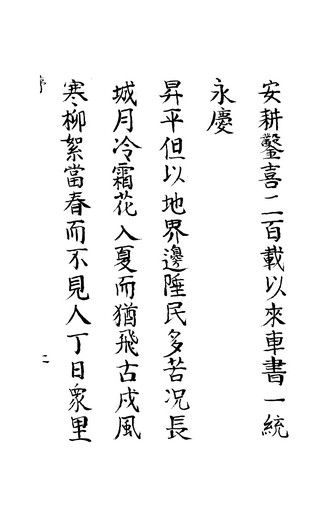 安耕鑿喜二百載以來車書一統
永慶
昇平但以地界邊陲民多苦况長
城月冷霜花入夏而猶飛古戍風
寒柳絮當春而不見人丁日衆里
序
二